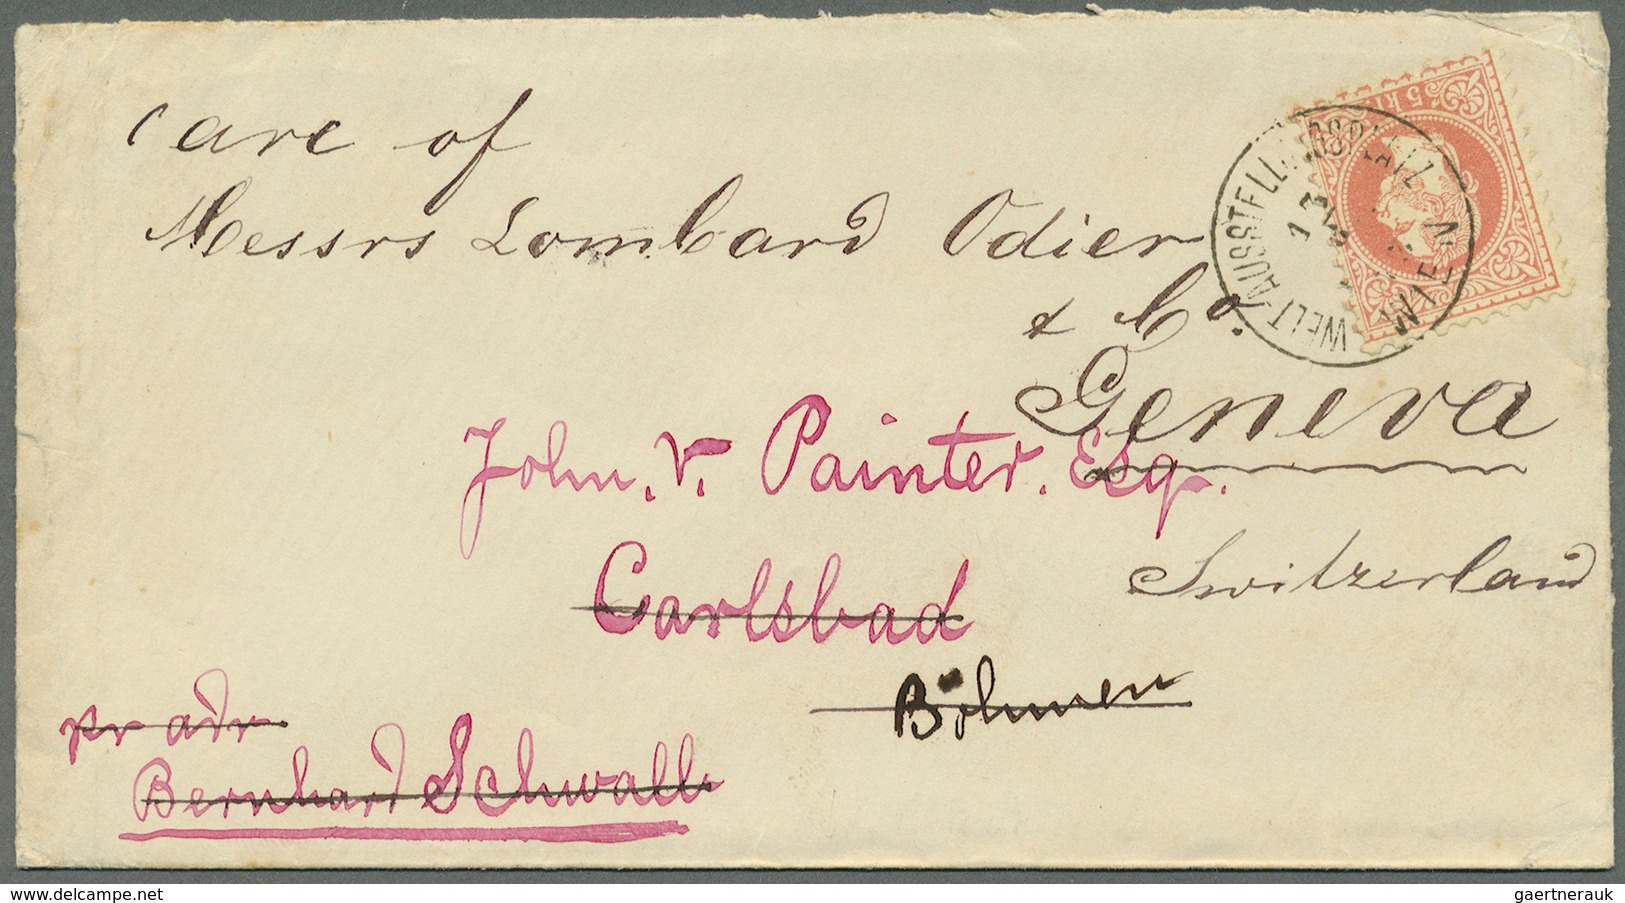 5 kr
WELT AUSSTELLUNGSPLATZ
WIEN
care of
Messrs Lombard Odier
& Co.
Geneva
John. V. Painter. Esq.
Switzerland
Carlsbad
Böhmen
pr adr
Bernhard Schwalb
www.delcampe.net
gaertnerauk